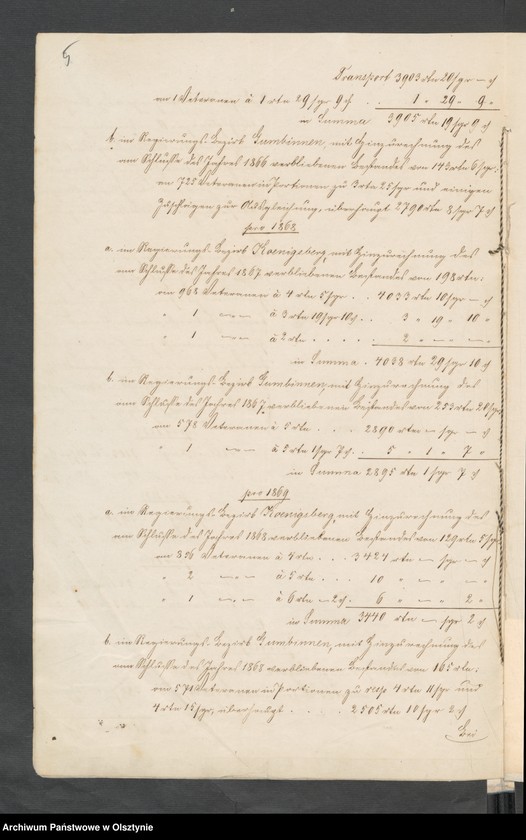 5
Transport 3903 rtn 20 sgr — ₰
an 1 Veteranen à 1 rtn 29 sgr 9 ₰ . . 1 " 29 " 9 "
in Summa 3905 rtn 19 sgr 9 ₰
b. im Regierungs-Bezirk Gumbinnen, mit Hinzurechnung des
am Schlusse des Jahres 1866 verbliebenen Bestandes von 143 rtn 6 sgr:
an 725 Veteranen in Portionen zu 3 rtn 25 sgr und einigen
Zuschlägen zur Ausgleichung, überhaupt 2790 rtn 8 sgr 7 ₰
pro 1868
a. im Regierungs-Bezirk Koenigsberg, mit Hinzurechnung des
am Schlusse des Jahres 1867 verbliebenen Bestandes von 198 rtn:
an 968 Veteranen à 4 rtn 5 sgr . . 4033 rtn 10 sgr — ₰
" 1 — " — à 3 rtn 19 sgr 10 ₰ . . 3 " 19 " 10 "
" 1 — " — à 2 rtn . . . . . 2 " — " — "
in Summa . 4038 rtn 29 sgr 10 ₰
b. im Regierungs-Bezirk Gumbinnen, mit Hinzurechnung des
am Schlusse des Jahres 1867 verbliebenen Bestandes von 253 rtn 20 sgr
an 578 Veteranen à 5 rtn . . . 2890 rtn — sgr — ₰
" 1 — " — à 5 rtn 1 sgr 7 ₰ . . 5 " 1 " 7 "
in Summa 2895 rtn 1 sgr 7 ₰
pro 1869
a. im Regierungs-Bezirk Koenigsberg, mit Hinzurechnung des
am Schlusse des Jahres 1868 verbliebenen Bestandes von 129 rtn 5 sgr
an 856 Veteranen à 4 rtn . . . 3424 rtn — sgr — ₰
" 2 — " — à 5 rtn . . . 10 " — " — "
" 1 — " — à 6 rtn — 2 ₰ . 6 " — " 2 "
in Summa 3440 rtn — sgr 2 ₰
b. im Regierungs-Bezirk Gumbinnen, mit Hinzurechnung des
am Schlusse des Jahres 1868 verbliebenen Bestandes von 165 rtn:
an 571 Veteranen in Portionen zu resp. 4 rtn 11 sgr und
4 rtn 15 sgr, überhaupt . . . . 2505 rtn 10 sgr 2 ₰
Bei
Archiwum Państwowe w Olsztynie